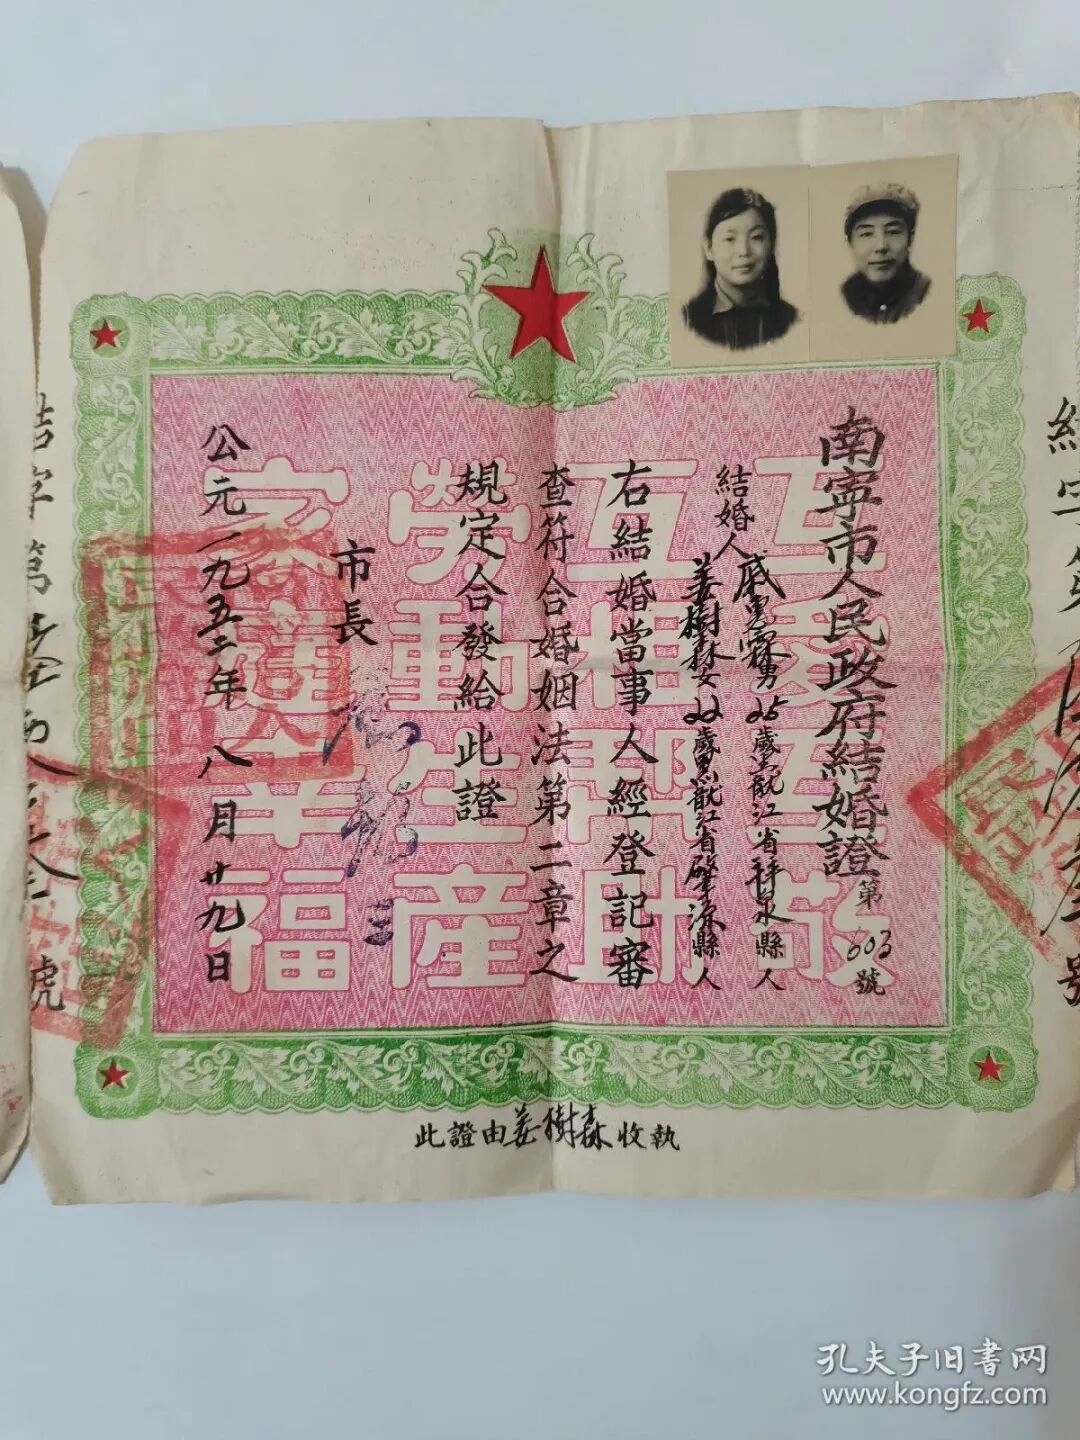 南寧市人民政府結婚證第603號
結婚人
戚墨霖男25歲黑龍江省拜泉縣人
姜樹森女22歲黑龍江省肇源縣人
右結婚當事人經登記審
查符合婚姻法第二章之
規定合發給此證
市長
公元一九五二年八月廿九日
互愛互敬
互相幫助
勞動生產
家庭幸福
此證由姜樹森收執
結字第
號
結字第
號
孔夫子旧書网
www.kongfz.com